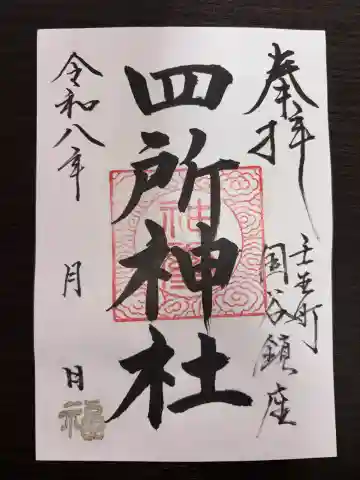 奉拝
壬生町
国谷鎮座
四所神社
令和八年
月
日
福